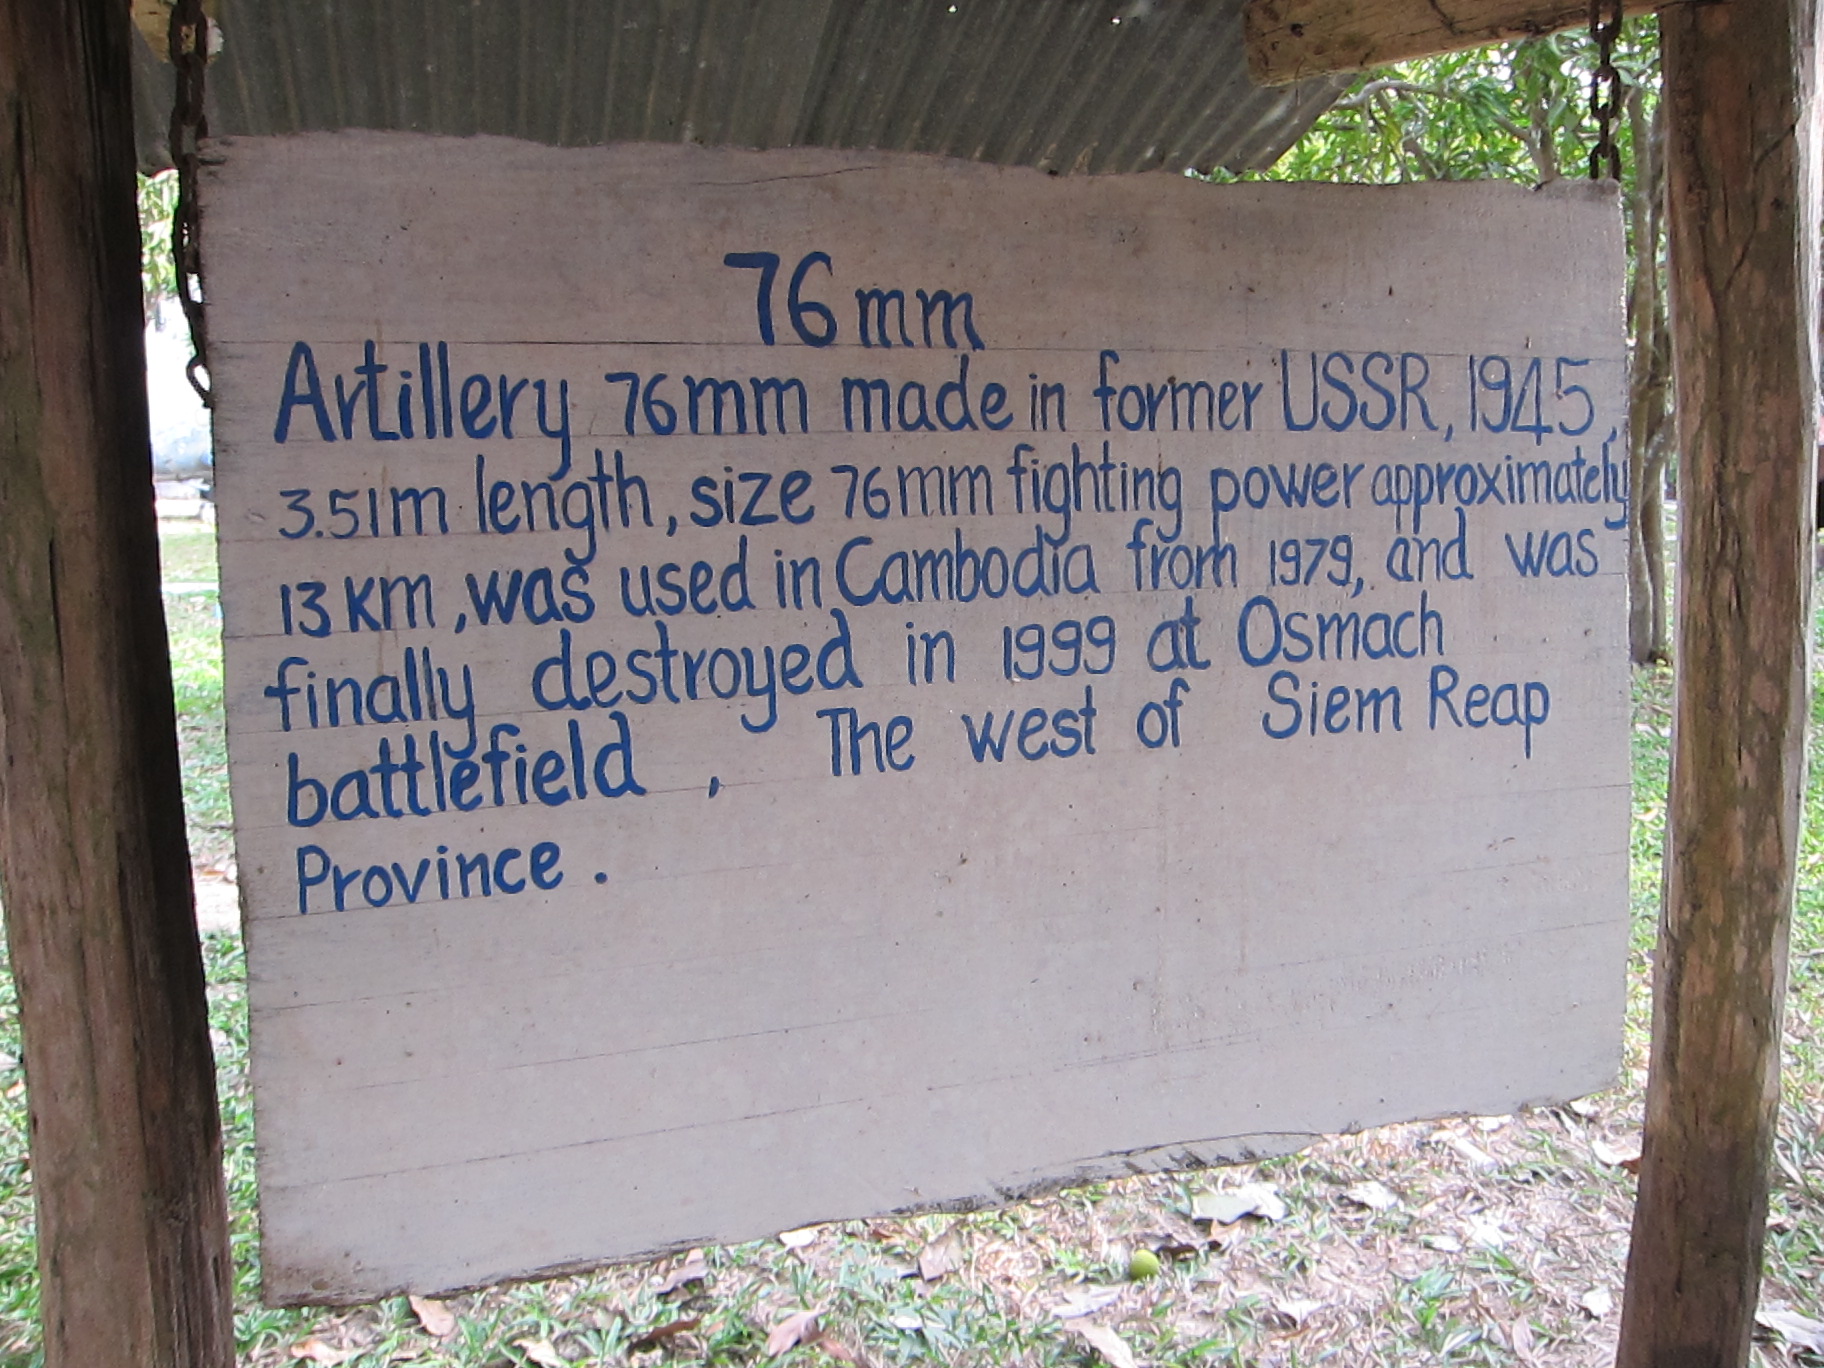 76mm
Artillery 76mm made in former USSR, 1945,
3.51m length, size 76mm fighting power approximately
13 Km, was used in Cambodia from 1979, and was
finally destroyed in 1999 at Osmach
battlefield , The west of Siem Reap
Province .